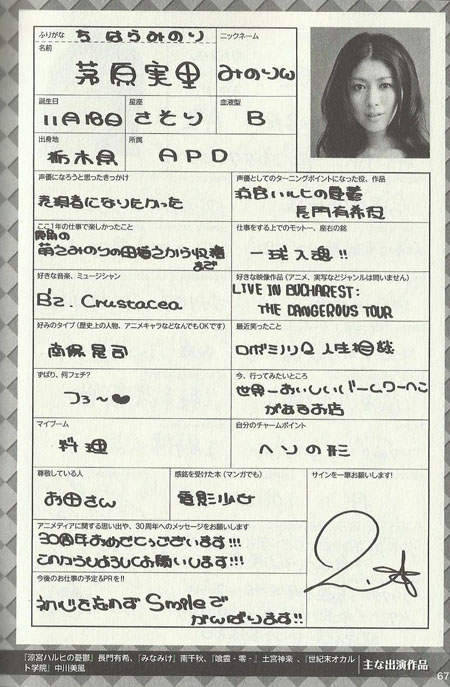 ふりがな
ちはらみのり
ニックネーム
名前
茅原実里
みのりん
誕生日
星座
血液型
11月18日
さそり
B
出身地
所属
栃木県
APD
声優になろうと思ったきっかけ
声優としてのターニングポイントになった役、作品
表現者になりたかった
涼宮ハルヒの憂鬱
長門有希役
ここ1年の仕事で楽しかったこと
仕事をする上でのモットー、座右の銘
萌えみのりの田植えから収穫
まで
一球入魂!!
好きな音楽、ミュージシャン
好きな映像作品(アニメ、実写などジャンルは問いません)
B'z. Crustacea
LIVE IN BUCHAREST:
THE DANGEROUS TOUR
好みのタイプ(歴史上の人物、アニメキャラなどなんでもOKです)
最近笑ったこと
南保晃司
ロボミノリの人生相談
ずばり、何フェチ?
今、行ってみたいところ
つぅ〜♥
世界一おいしいバームクーヘン
があるお店
マイブーム
自分のチャームポイント
料理
ヘソの形
尊敬している人
感銘を受けた本(マンガでも)
サインを一筆お願いします!
お田さん
電影少女
アニメディアに関する思い出や、30周年へのメッセージをお願いします
30周年おめでとうございます!!!
このつうしよろしくお願いします!!!
今後のお仕事の予定&PRを!!
初心を忘れず Smileで
がんばります!!
『涼宮ハルヒの憂鬱』長門有希、『みなみけ』南千秋、『喰霊-零-』土宮神楽 、『世紀末オカル
ト学院』中川美風
主な出演作品
67